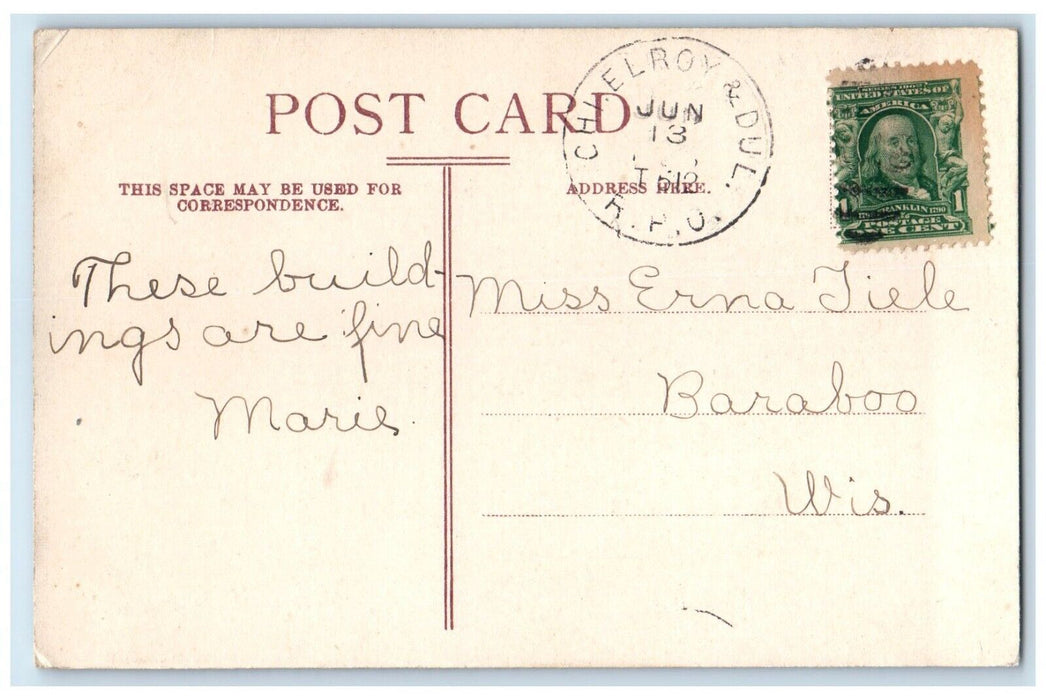 POST CARD
THIS SPACE MAY BE USED FOR
CORRESPONDENCE.
ADDRESS HERE.
CHI. ELROY & DUL.
JUN
13
R.P.O.
SERIES 1902
UNITED STATES OF
AMERICA
FRANKLIN 1790
POSTAGE
ONE CENT
1
These build-
ings are fine
Marie.
Miss Erna Tiele
Baraboo
Wis.